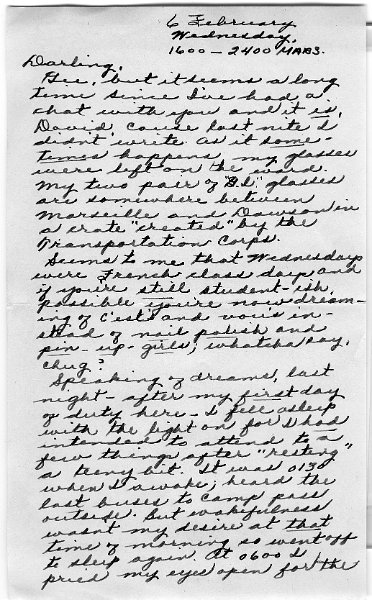 6 February
Wednesday,
1600 - 2400 HABS.
Darling,
Gee, but it seems a long
time since I've had a
chat with you and it is,
David, cause last nite I
didn't write as it some-
times happens, my glasses
were left on the ward.
My two pair of "G.I." glasses
are somewhere between
Marseille and Dawson in
a crate "created" by the
Transportation Corps.
Seems to me that Wednesdays
were French class days and
if you're still student-ish,
possible you're now dream-
ing of c'est and vous in-
stead of nail polish and
pin-up-girls; whatcha say,
chug?
Speaking of dreams, last
night - after my first day
of duty here - I fell asleep
with the light on for I had
intended to attend to a
few things after "resting"
a teeny bit. It was 0130
when I awoke; heard the
last buses to camp pass
outside. But wakefulness
wasn't my desire at that
time of morning so went off
to sleep again. At 0600 I
pried my eyes open for the